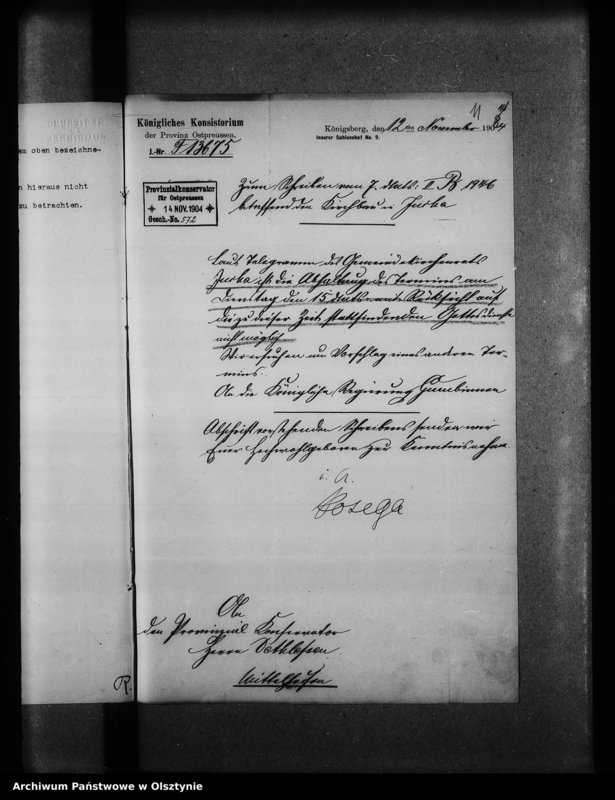 em oben bezeichne-
n hieraus nicht
zu betrachten.
R.
11
Königliches Konsistorium
der Provinz Ostpreussen.
J.-Nr. F 13675
Königsberg, den 12ten November 1904
Innerer Schlosshof No. 9.
Provinzialkonservator
für Ostpreussen
14 NOV. 1904
Gesch.-No. 572
Zum Schreiben vom 7. d. Mts. II 1946
betreffend den Kirchbau in Jurka
Laut Telegramm des Gemeindekirchenrats
Jurka ist die Abhaltung des Termins am
Dienstag den 15 d. Mts. mit Rücksicht auf
die zu dieser Zeit stattfindenden Gottesdienste
nicht möglich.
Wir ersuchen um Vorschlag eines anderen Ter-
mins.
An die Königliche Regierung Gumbinnen
Abschrift vorstehenden Schreibens senden wir
Euer Hochwohlgeboren zur Kenntnisnahme.
i. A.
An
den Provinzial Konservator
Herrn Dethlefsen
Archiwum Państwowe w Olsztynie